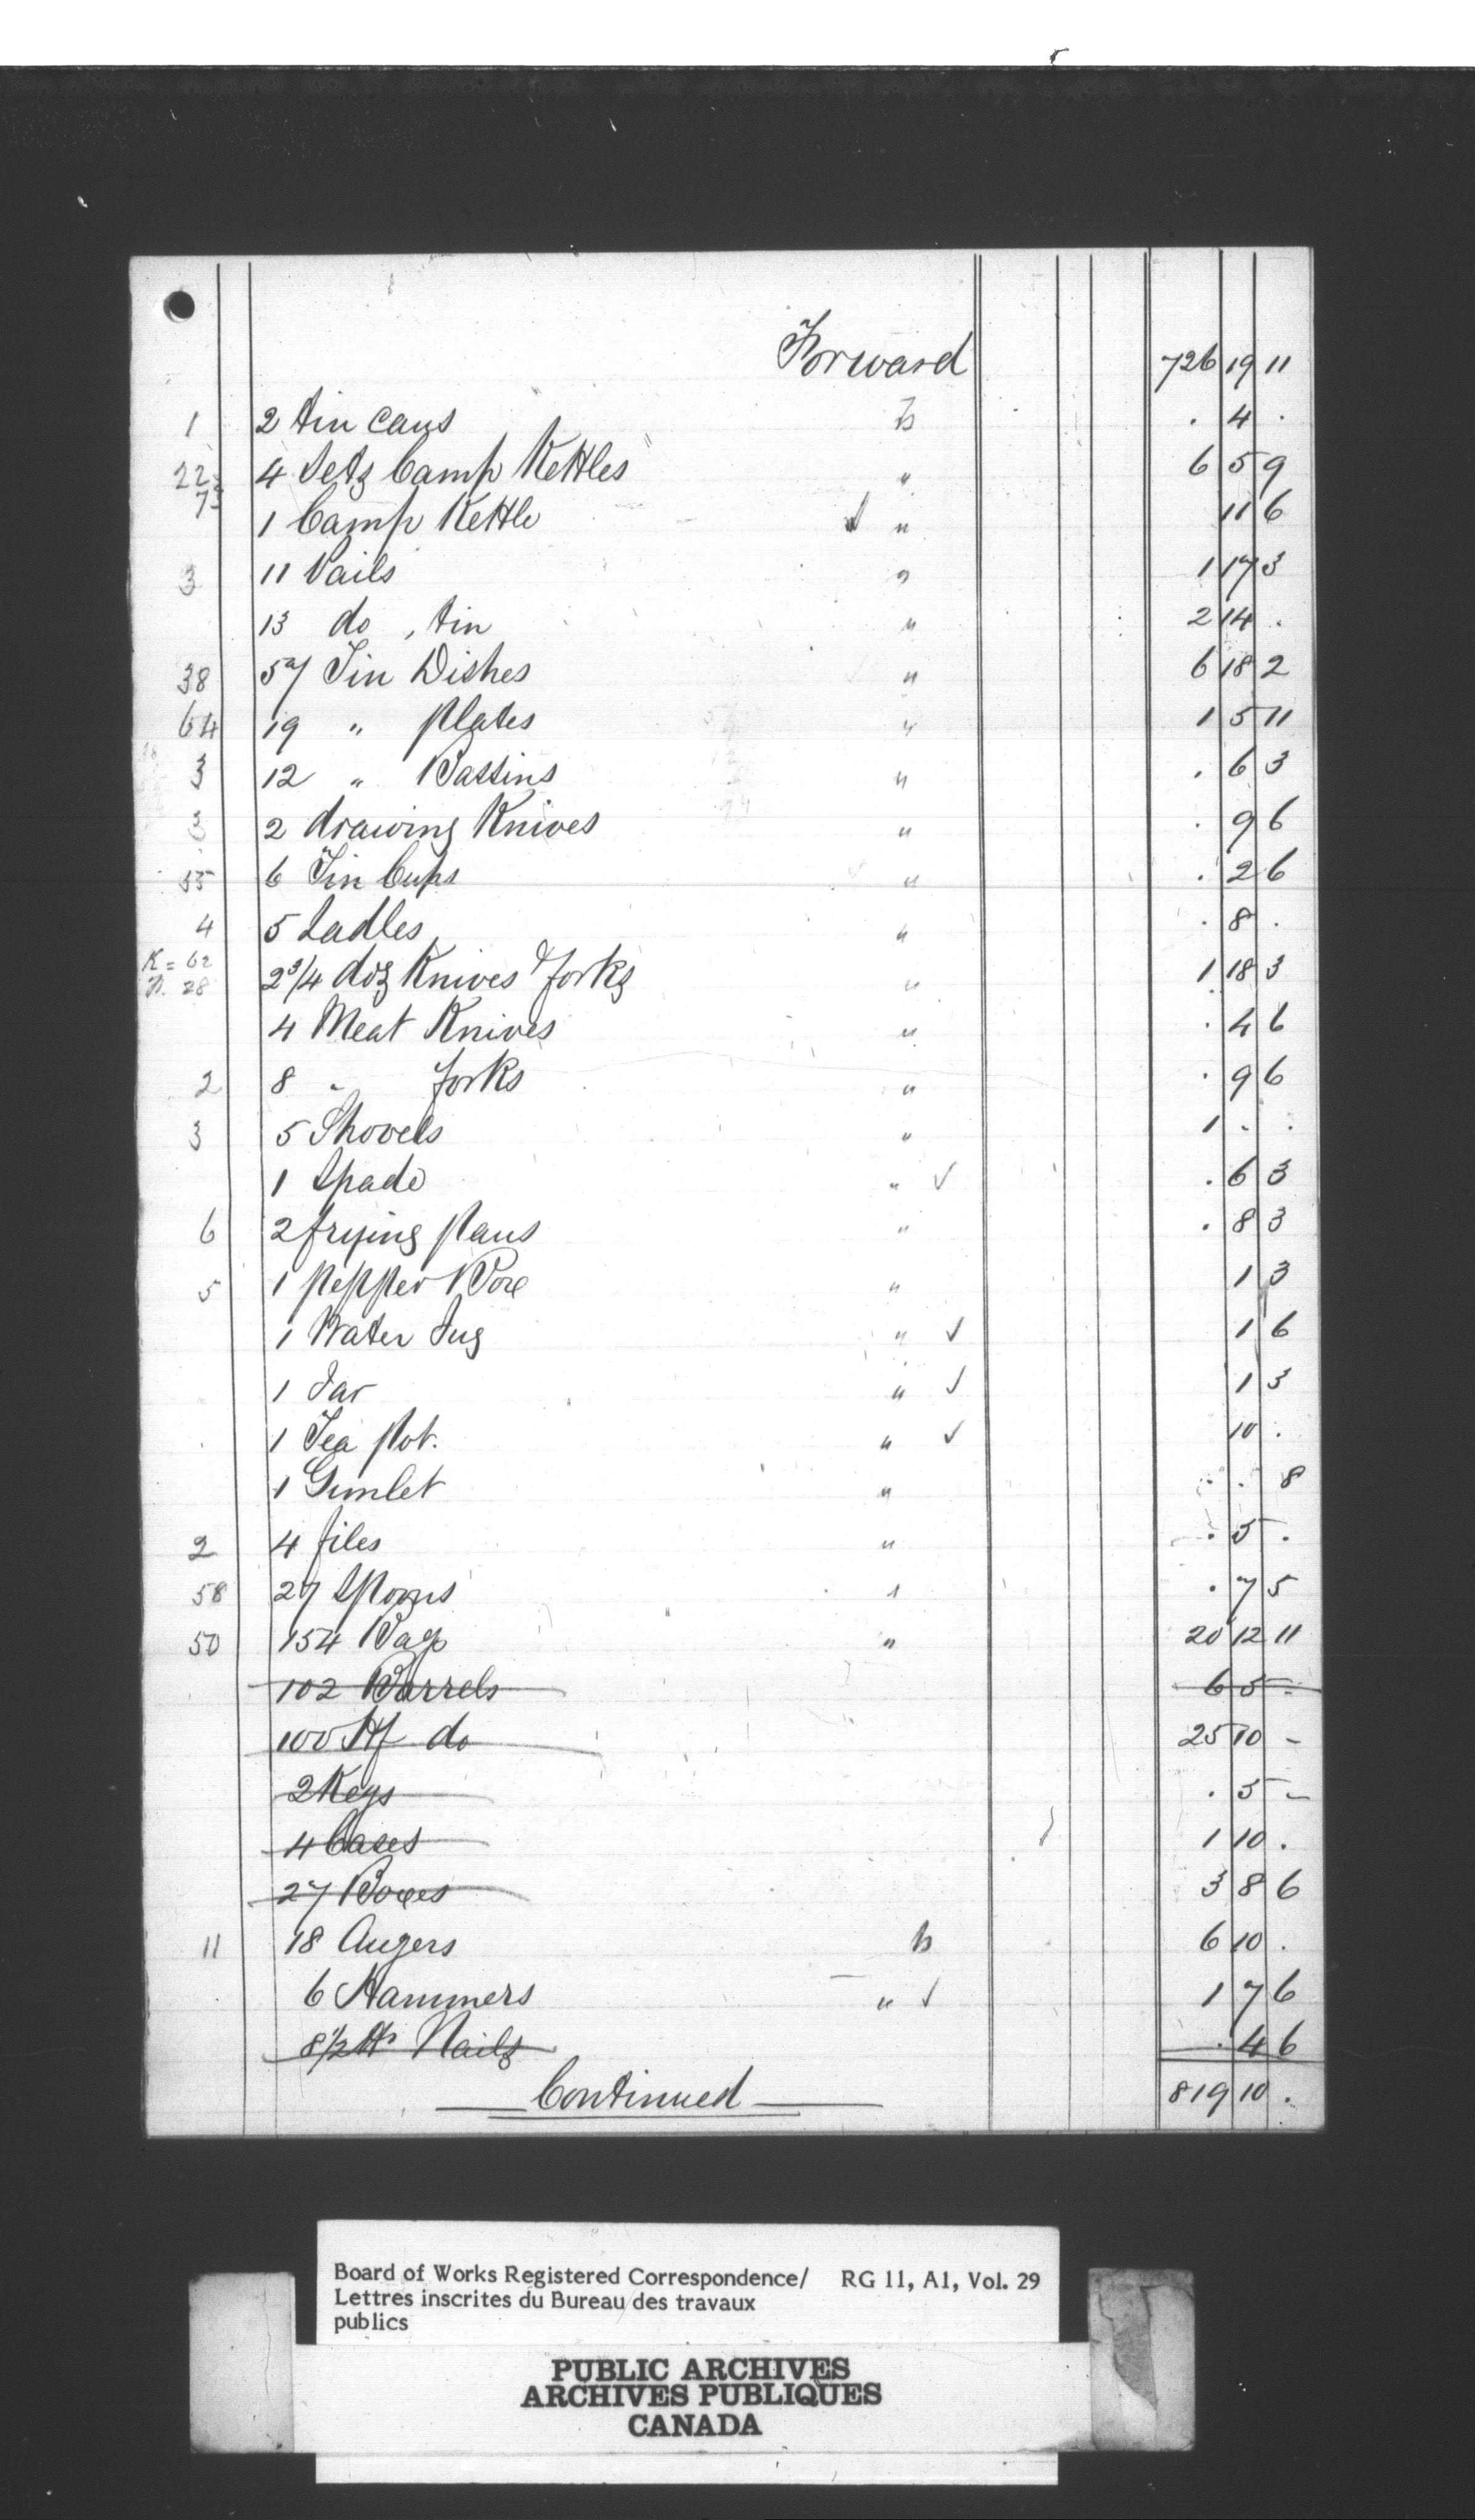 Forward 726 19 11
1 2 tin cans B . 4 .
22 4 Setz Camp Kettles " 6 5 9
7 1 Camp Kettle ✓ " 11 6
3 11 Pails " 1 17 3
13 do , tin " 2 14 .
38 57 Tin Dishes " 6 18 2
64 19 " plates " 1 5 11
3 12 " Bassins " . 6 3
2 drawing Knives " . 9 6
55 6 Tin Cups " . 2 6
4 5 Ladles " . 8 .
K = 62
28 2 3/4 doz Knives & forks " 1 18 3
4 Meat Knives " . 4 6
2 8 " forks " . 9 6
3 5 Shovels " 1 . .
1 Spade " ✓ . 6 3
6 2 frying pans " . 8 3
5 1 pepper Box " 1 3
1 Water Jug " ✓ 1 6
1 Jar " ✓ 1 3
1 Tea pot. " ✓ 10 .
1 Gimlet " . . 8
2 4 files " . 5 .
58 27 Spoons " . 7 5
50 154 Bags " 20 12 11
102 Barrels 6 5 -
100 Hf do 25 10 -
2 Kegs . 5 -
4 Cases 1 10 .
27 Boxes 3 8 6
11 18 Augers B 6 10 .
6 Hammers " ✓ 1 7 6
8 1/2 lbs Nails . 4 6
Continued 819 10 .
Board of Works Registered Correspondence/ RG 11, A1, Vol. 29
Lettres inscrites du Bureau des travaux
publics
PUBLIC ARCHIVES
ARCHIVES PUBLIQUES
CANADA